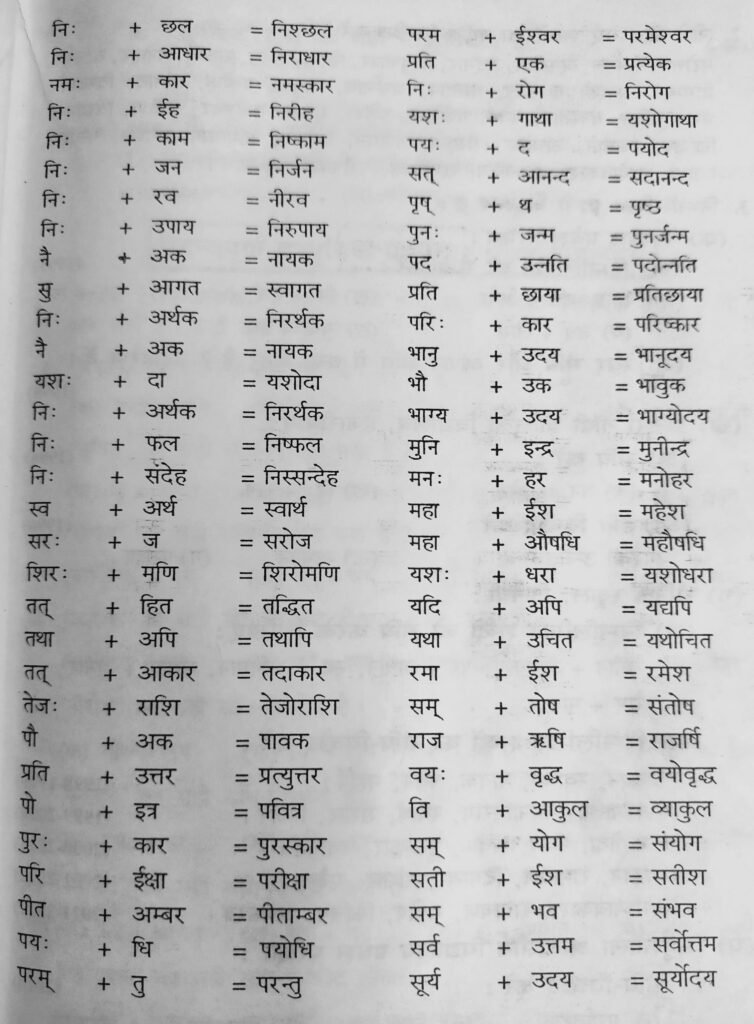 निः + छल = निश्छल
निः + आधार = निराधार
नमः + कार = नमस्कार
निः + ईह = निरीह
निः + काम = निष्काम
निः + जन = निर्जन
निः + रव = नीरव
निः + उपाय = निरुपाय
नै + अक = नायक
सु + आगत = स्वागत
निः + अर्थक = निरर्थक
नै + अक = नायक
यशः + दा = यशोदा
निः + अर्थक = निरर्थक
निः + फल = निष्फल
निः + संदेह = निस्सन्देह
स्व + अर्थ = स्वार्थ
सरः + ज = सरोज
शिरः + मणि = शिरोमणि
तत् + हित = तद्धित
तथा + अपि = तथापि
तत् + आकार = तदाकार
तेजः + राशि = तेजोराशि
पौ + अक = पावक
प्रति + उत्तर = प्रत्युत्तर
पो + इत्र = पवित्र
पुरः + कार = पुरस्कार
परि + ईक्षा = परीक्षा
पीत + अम्बर = पीताम्बर
पयः + धि = पयोधि
परम् + तु = परन्तु
परम ईश्वर = परमेश्वर
प्रति + एक = प्रत्येक
निः + रोग = निरोग
यशः + गाथा = यशोगाथा
पयः + द = पयोद
सत् + आनन्द = सदानन्द
पृष् + थ = पृष्ठ
पुनः + जन्म = पुनर्जन्म
पद + उन्नति = पदोन्नति
प्रति + छाया = प्रतिछाया
परिः + कार = परिष्कार
भानु + उदय = भानूदय
भौ + उक = भावुक
भाग्य + उदय = भाग्योदय
मुनि + इन्द्र = मुनीन्द्र
मनः + हर = मनोहर
महा + ईश = महेश
महा + औषधि = महौषधि
यशः + धरा = यशोधरा
यदि + अपि = यद्यपि
यथा + उचित = यथोचित
रमा + ईश = रमेश
सम् + तोष = संतोष
राज + ऋषि = राजर्षि
वयः + वृद्ध = वयोवृद्ध
वि + आकुल = व्याकुल
सम् + योग = संयोग
सती + ईश = सतीश
सम् + भव = संभव
सर्व + उत्तम = सर्वोत्तम
सूर्य + उदय = सूर्योदय